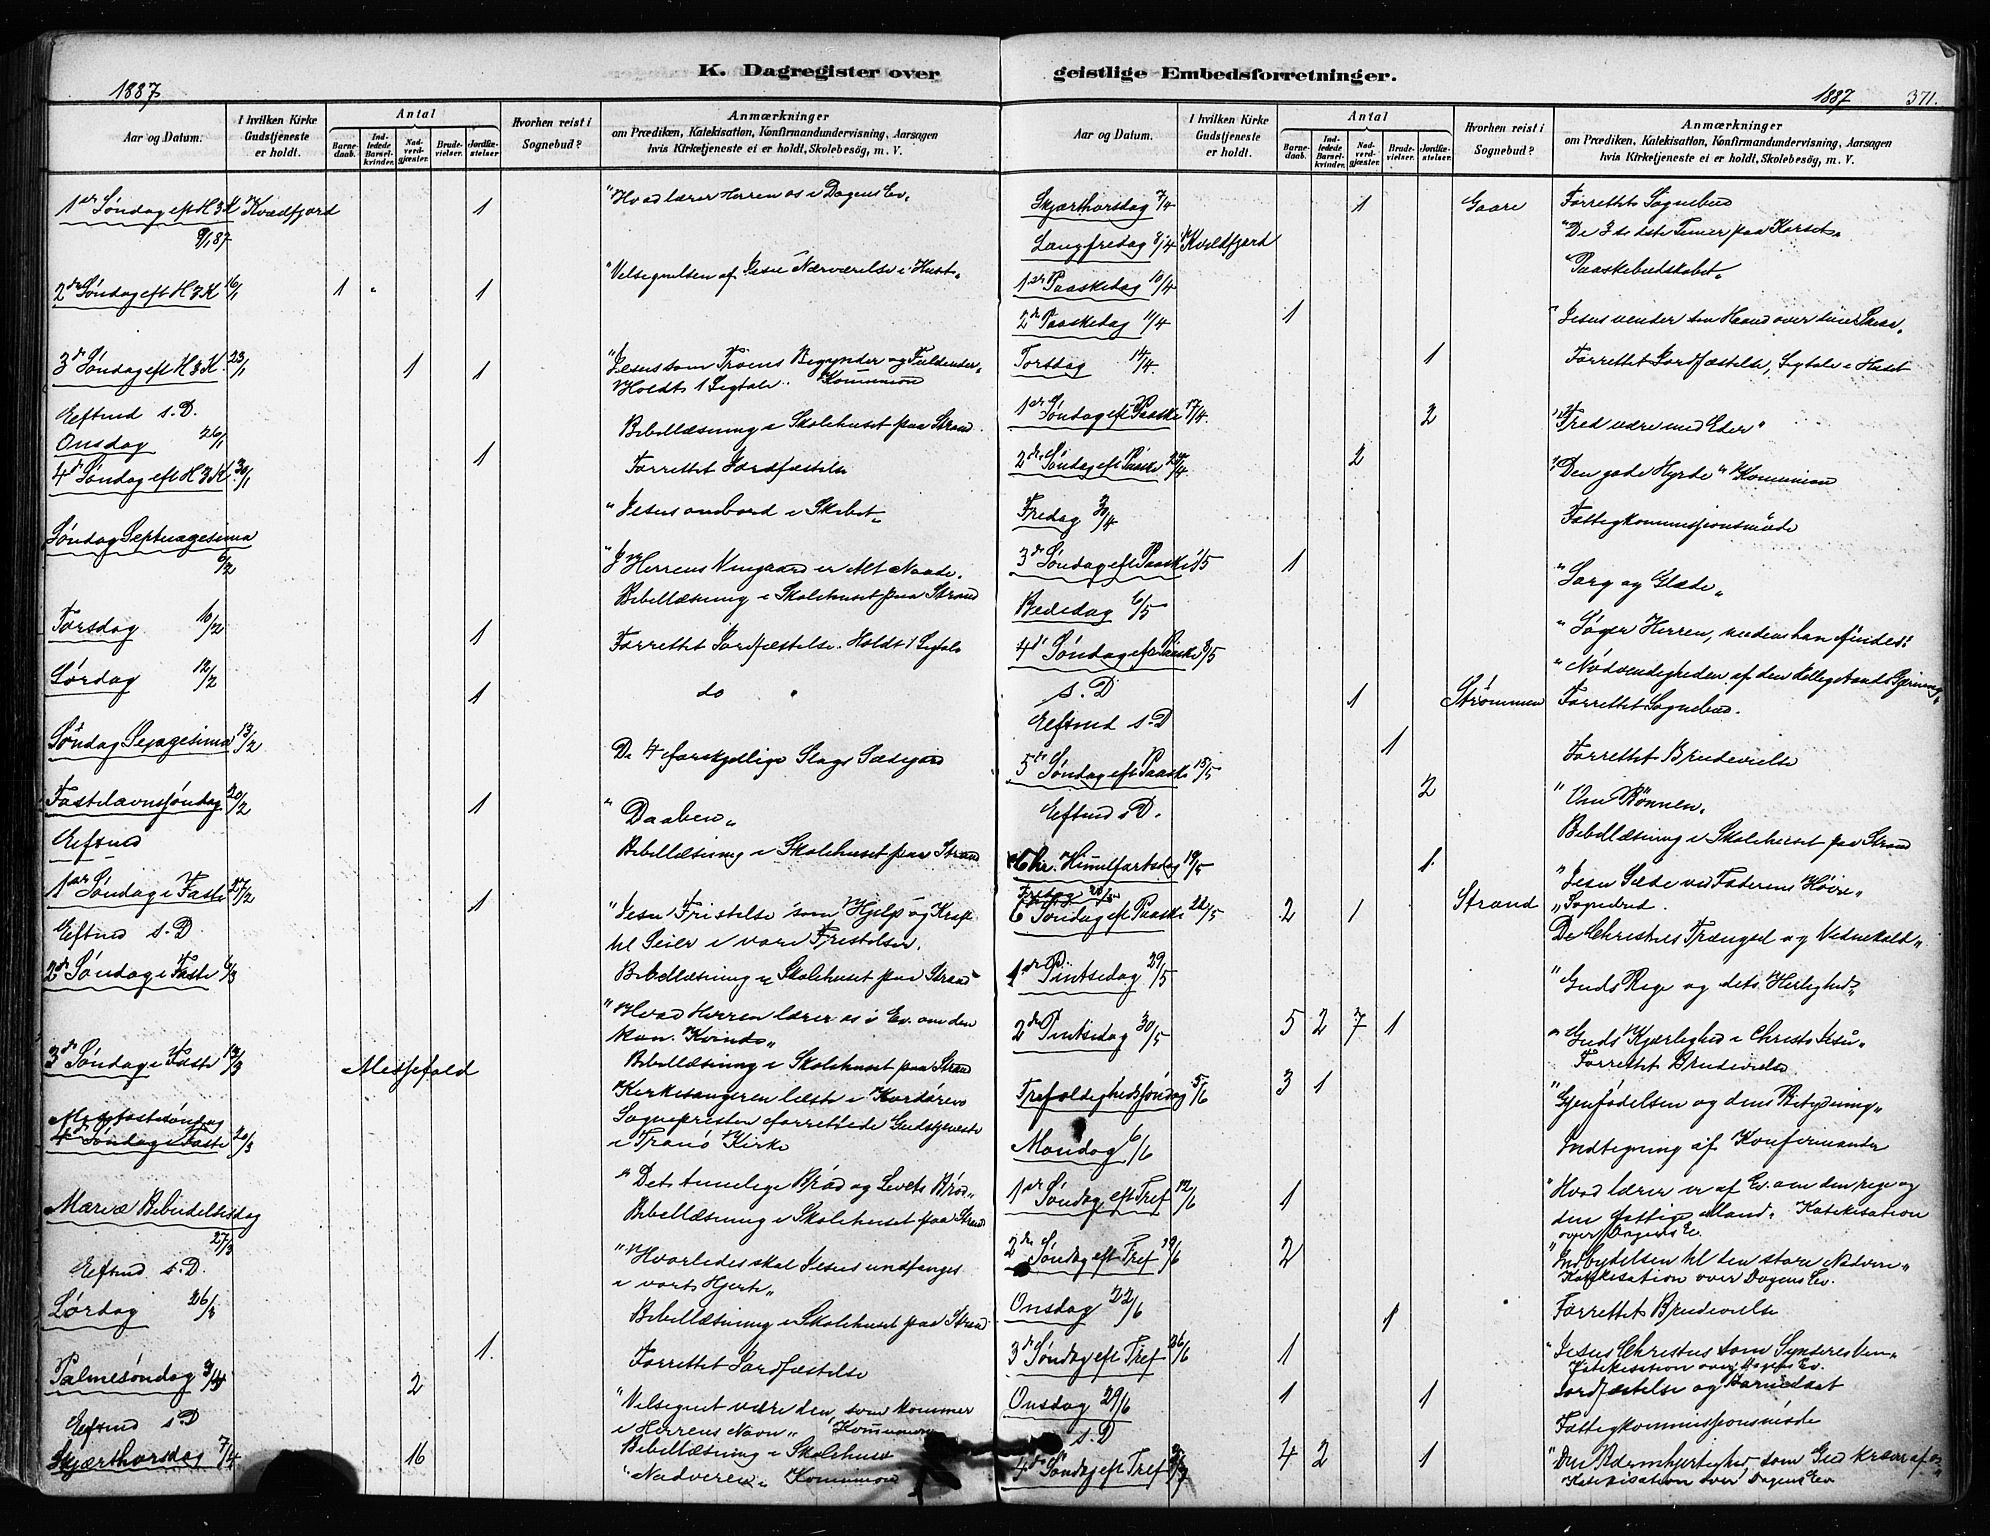 K. Dagregister over geistlige Embedsforretninger.
1887
1887 371.
Aar og Datum.
I hvilken Kirke Gudstjeneste er holdt.
Antal
Barnedaab.
Indledede Barselkvinder.
Nadverdgjester.
Brudevielser.
Jordfæstelser
Hvorhen reist i Sognebud?
Anmærkninger
om Prædiken, Katekisation, Konfirmandundervisning, Aarsagen
hvis Kirketjeneste ei er holdt, Skolebesøg, m. V.
1ste Søndag eft H3K Kvædfjord 1 "Hvad lærer Herren os i Dagens Ev.
9/1 87
2den Søndag eft H3K 16/1 1 " 1 "Velsignelsen af Jesu Nærværelse i Huset"
3de Søndag eft H3K. 23/1 1 1 "Jesus som Troens Begynder og Fuldender"
Holdt 1 Ligtale. Kommunion
Eeftmd s. D. Bibellæsning i Skolehuset paa Strand.
Onsdag 26/1 1 Forrettet Jordfæstelse
4de Søndag eft H3K. 30/1 "Jesus ombord i Skibet"
Søndag Septuagesima
6/2 "I Herrens Vingaard er Alt Naade.
Bibellæsning i Skolehuset paa Strand
Torsdag 10/2 1 Forrettet Jordfæstelse. Holdt 1 Ligtale
Lørdag 12/2 1 do "
Søndag Sexagesima 13/2 De 4 forskjellige Slags Sædejord
Fastelavnssøndag 20/2 1 "Daaben"
Eeftmd Bibellæsning i Skolehuset paa Strand
1ste Søndag i Faste 27/2 1 "Jesu Fristelse som Hjelp og Kraft
til Seier i vore Fristelser.
Eeftmd s. D Bibellæsning i Skolehuset paa Strand
2den Søndag i Faste 6/3 "Hvad Herren lærer os i Ev. om den
kan. Kvinde"
Bibellæsning i Skolehuset paa Strand
3de Søndag i Faste 13/3 Messefald Kirkesangeren læste i Kordøren
Sognepresten forrettede Gudstjeneste
i Tranø Kirke
Midfastesøndag
4de Søndag i Faste 20/3 "Det timelige Brød og Livets Brød"
Bibellæsning i Skolehuset paa Strand
Mariæ Bebudelsesdag
27/3 "Hvorledes skal Jesus undfanges
i vort Hjerte"
Eeftmd s. D. Bibellæsning i Skolehuset paa Strand
Lørdag 26/3 1. Forrettet Jordfæstelse
Palmesøndag 3/4 2 "Velsignet være den, som kommer
i Herrens Navn" Kommunion
Eeftmd s. D Bibellæsning i Skolehuset
Skjærthorsdag 7/4 16 "Nadveren" Kommunion
Aar og Datum.
I hvilken Kirke Gudstjeneste er holdt.
Antal
Barnedaab.
Indledede Barselkvinder.
Nadverdgjester.
Brudevielser.
Jordfæstelser.
Hvorhen reist i Sognebud?
Anmærkninger
om Prædiken, Katekisation, Konfirmandundervisning, Aarsagen
hvis Kirketjeneste ei er holdt, Skolebesøg, m. V.
Skjærthorsdag 7/4 1 Gaare Forrettet Sognebud
Langfredag 8/4 Kvædfjord "De 3 sidste Timer paa Korset"
1ste Paaskedag 10/4 "Paaskebudskabet"
2den Paaskedag 11/4 1 "Jesus vender sin Haand over sine
Torsdag 14/4. 1 Forrettet Jordfæstelse, Ligtale i Huset
1ste Søndag eft Paaske 17/4. 2 "Fred være med Eder"
2den Søndag eft Paaske 24/4 2 "Den gode Hyrde" Kommunion
Fredag 30/4 Fattigkommissionsmøde
3de Søndag eft Paaske 1/5 1 "Sorg og Glæde"
Bededag 6/5 "Søger Herren, medens han findes:
4de Søndag eft Paaske 8/5 "Nødvendigheden af den Helligaands Gjerning"
s. D 1 Strømmen Forrettet Sognebud.
Eeftmd s. D 1 Forrettet Brudevielse
5te Søndag eft Paaske 15/5 2 "Om Bønnen.
Eeftmd s. D. Bibellæsning i Skolehuset paa Strand
Chr. Himmelfartsdag 19/5 1. "Jesu Sæde ved Faderens Høire"
Fredag 20/5 Strand "Sognebud.
6 Søndag eft Paaske 22/5 2 1 De Christnes Trængsel og Vidnekald"
1ste Pintsedag 29/5 "Guds Rige og dets Herlighed"
2den Pintsedag 30/5 5 2 7 1 "Guds Kjærlighed i Christo Jesu"
Forrettet Brudevielse
Trefoldighedssøndag 5/6 3 1 "Gjenfødelsen og dens Betydning"
Mandag 6/6 Indtegning af Konfirmander
1ste Søndag eft Tref 12/6 1 "Hvad lærer vi af Ev. om den rige og
den fattige Mand. Katekisation
over Dagens Ev.
2den Søndag eft Tref 19/6 2 "Indbydelsen til den store Nadvere"
Katekisation over Dagens Ev.
Onsdag 22/6 1 Forrettet Brudevielse
3de Søndag eft Tref 26/6 1 "Jesus Christus som Synderes Ven"
Katekisation over Dagens Ev.
Onsdag 29/6 1 1 Jordfæstelse og Barnedaab
s. D Fattigkommissionsmøde
4de Søndag eft Tref 3/7 4 2 1 "Den Barmhjertighed, som Gud kræver af os"
Katekisation over Dagens Ev